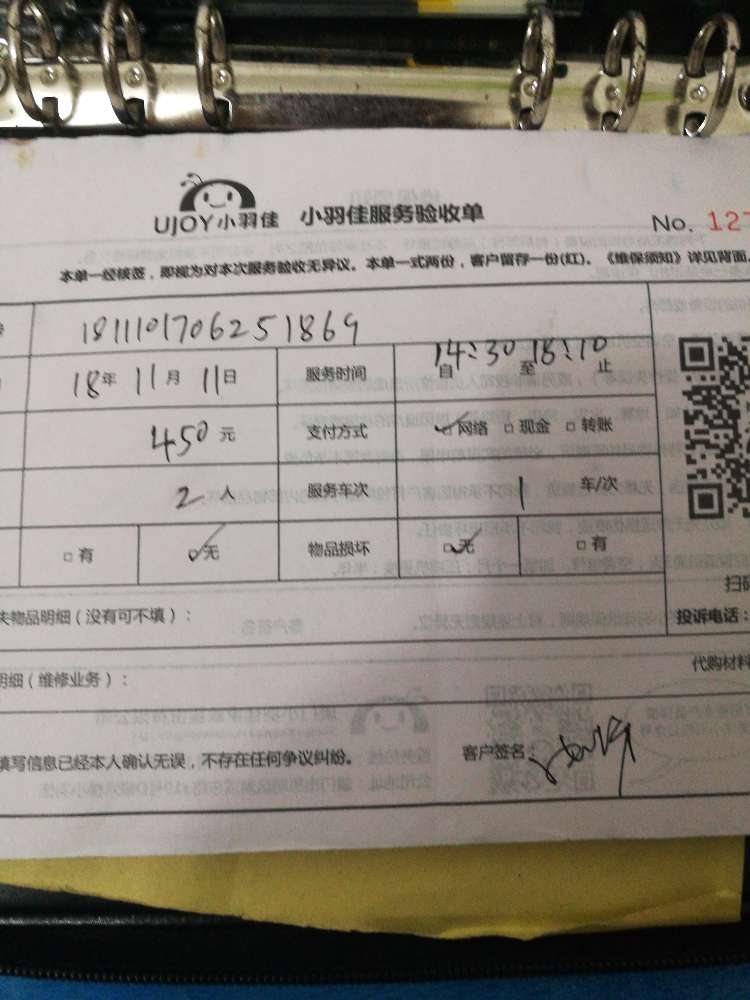 UJOY小羽佳 小羽佳服务验收单
No. 127
本单一经核签，即视为对本次服务验收无异议。本单一式两份，客户留存一份(红)。《维保须知》详见背面。
1811101706251869
18年 11月 11日 服务时间 自14:30至18:10止
450元 支付方式 ☑网络 □现金 □转账
2人 服务车次 1 车/次
□有 ☑无 物品损坏 ☑无 □有
失物品明细（没有可不填）：
扫码
投诉电话：
明细（维修业务）：
代购材料
填写信息已经本人确认无误，不存在任何争议纠纷。 客户签名：